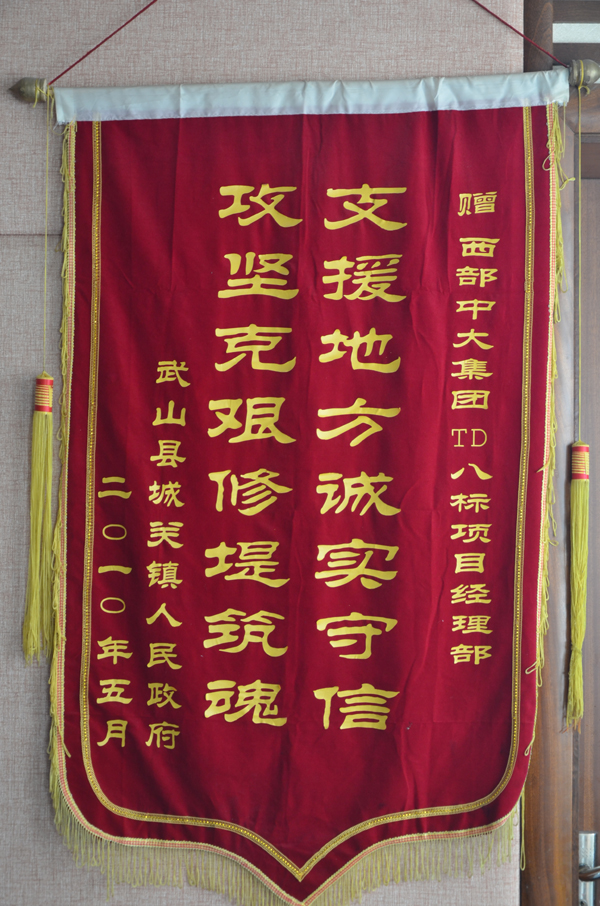 赠 西部中大集团TD八标项目经理部
支援地方诚实守信
攻坚克艰修堤筑魂
武山县城关镇人民政府
二〇一〇年五月